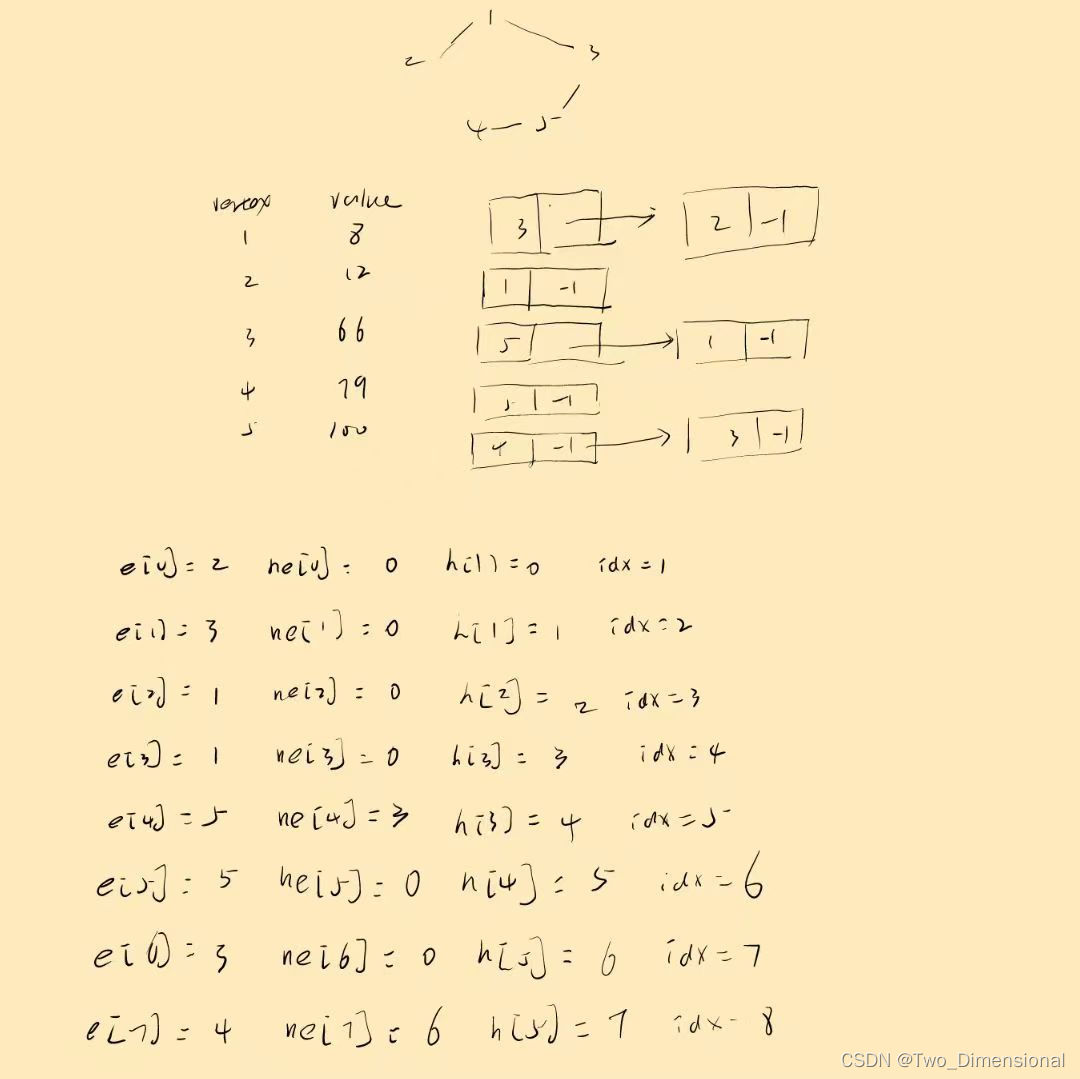 1
2 3
4 5
vertex value 3 2 -1
1 8
2 12 1 -1
3 66 5 1 -1
4 79 5 -1
5 100 4 -1 3 -1
e[0] = 2 ne[0] = 0 h[1] = 0 idx = 1
e[1] = 3 ne[1] = 0 h[1] = 1 idx = 2
e[2] = 1 ne[2] = 0 h[2] = 2 idx = 3
e[3] = 1 ne[3] = 0 h[3] = 3 idx = 4
e[4] = 5 ne[4] = 3 h[3] = 4 idx = 5
e[5] = 5 ne[5] = 0 h[4] = 5 idx = 6
e[6] = 3 ne[6] = 0 h[5] = 6 idx = 7
e[7] = 4 ne[7] = 6 h[5] = 7 idx = 8
CSDN @Two_Dimensional